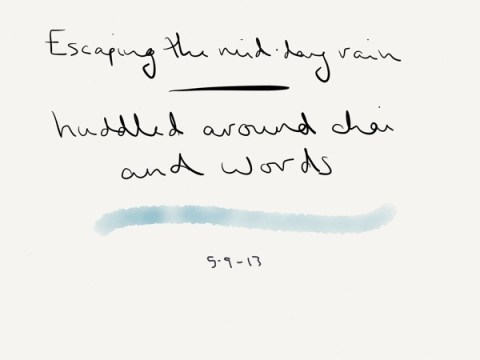 Escaping the mid-day rain
huddled around chai
and words
5-9-13